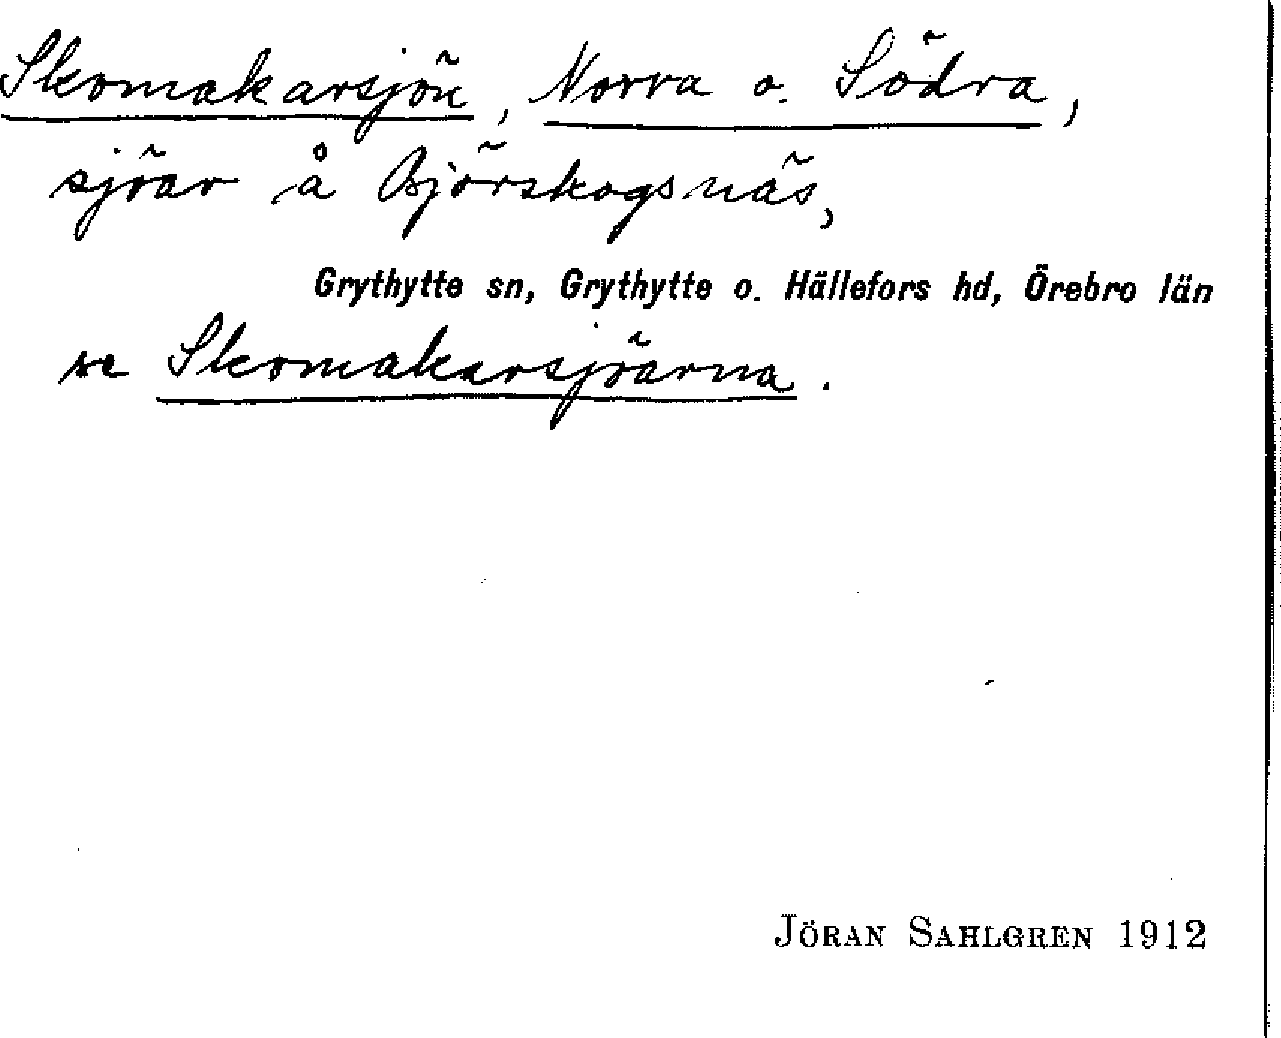 Skomakarsjön, Norra o. Södra,
sjöar å Björskogsnäs,
Grythytte sn, Grythytte o. Hällefors hd, Örebro län
se Skomakarsjöarna.
JÖRAN SAHLGREN 1912